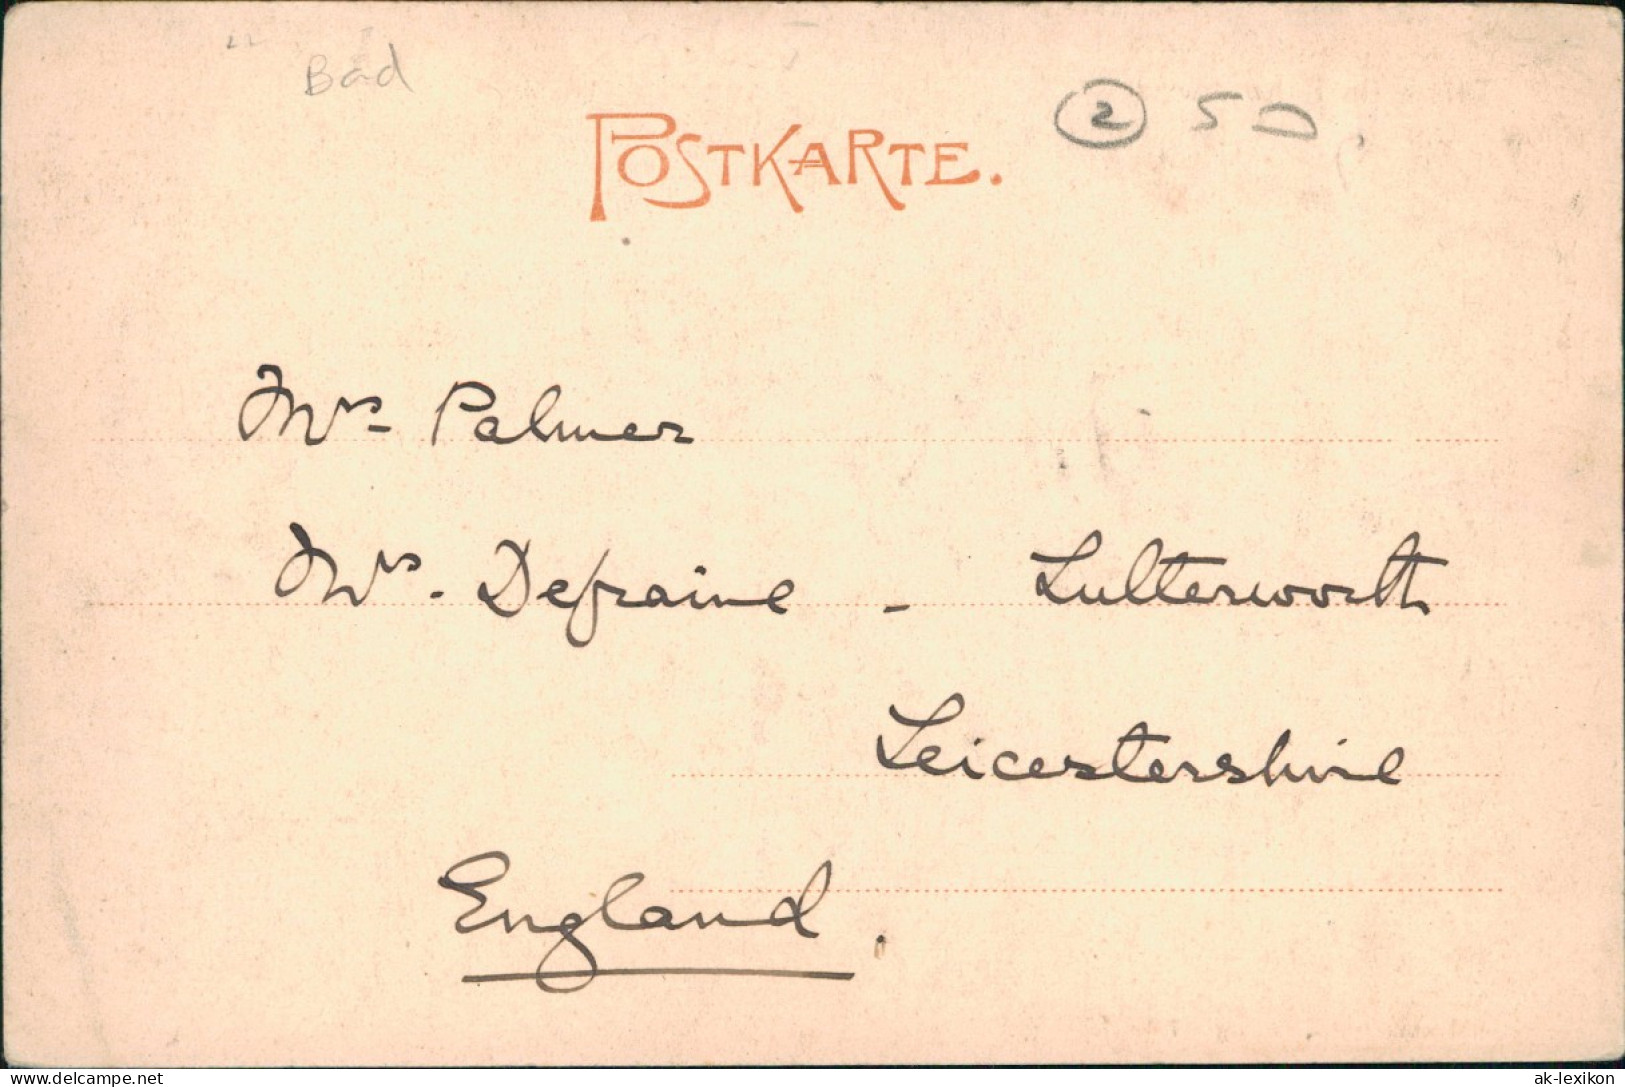 Bad
② 50
POSTKARTE.
Mrs Palmer
Mrs. Defraine - Lutterworth
Leicestershire
England.
www.delcampe.net
ak-lexikon